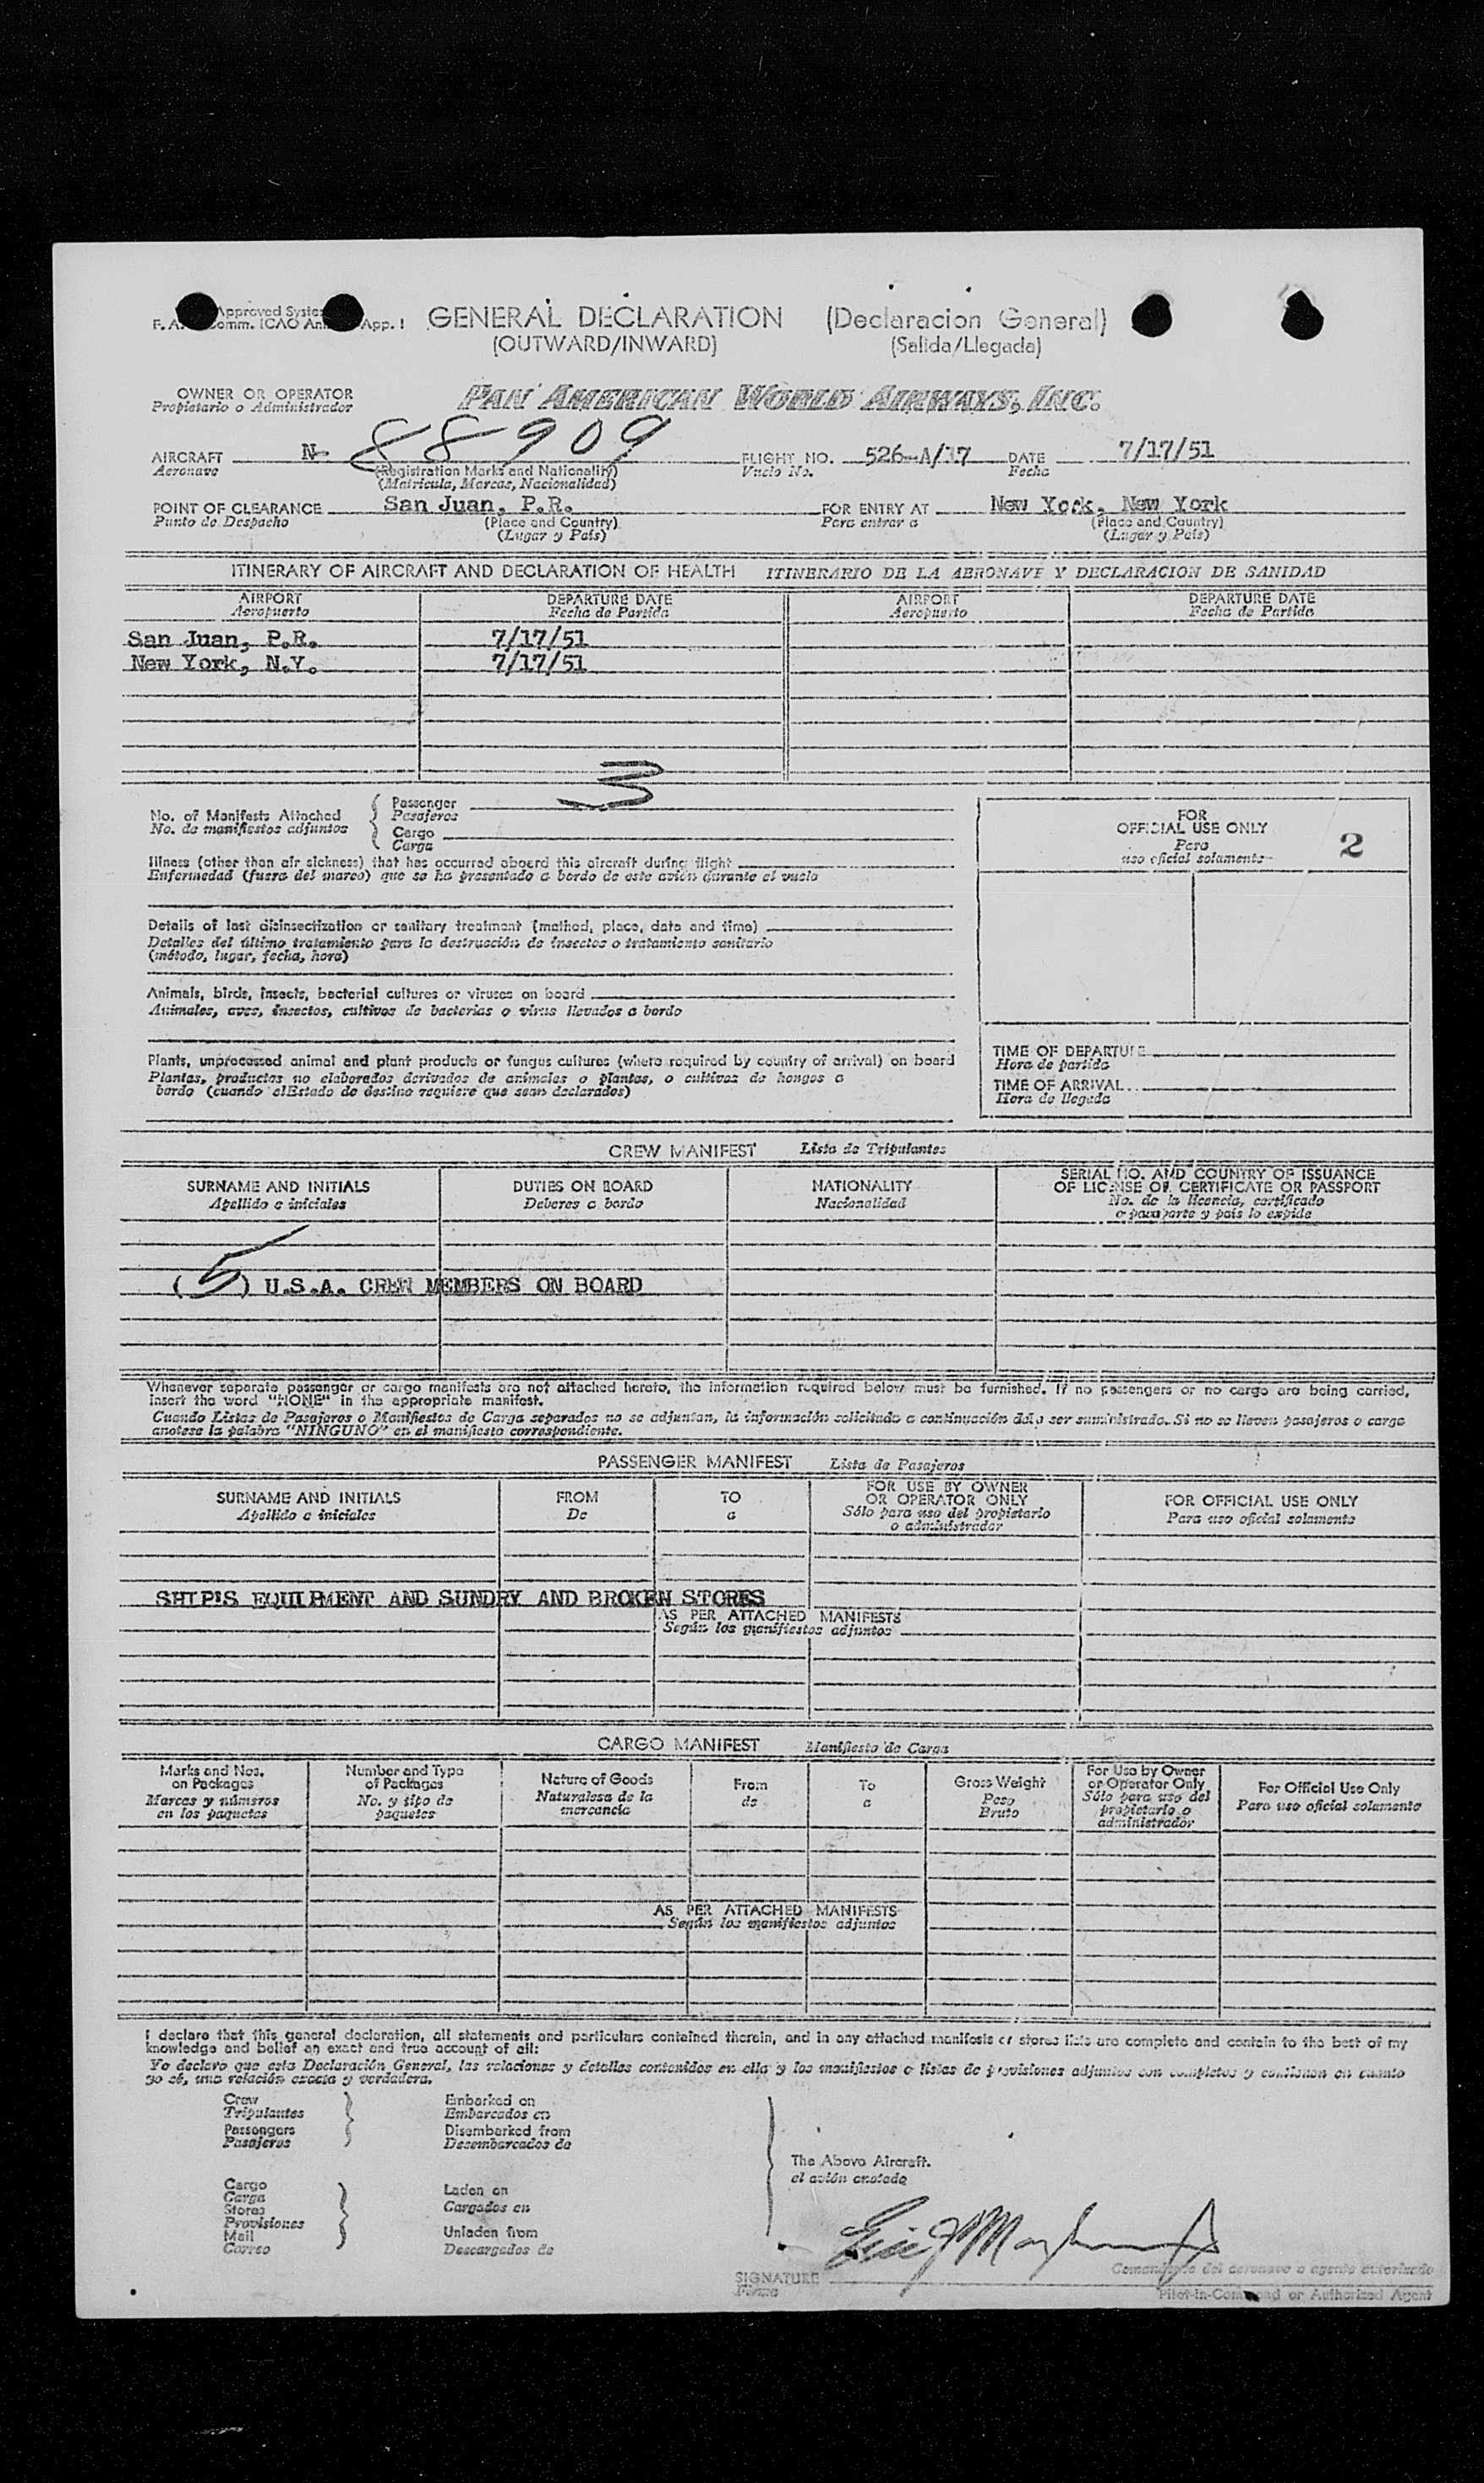 Approved System GENERAL DECLARATION (Declaracion General)
F. A. Comm. ICAO App. 1 (OUTWARD/INWARD) (Salida/Llegada)
OWNER OR OPERATOR PAN AMERICAN WORLD AIRWAYS, INC.
Propietario o Administrador
AIRCRAFT N- 88909 FLIGHT NO. 526-A/17 DATE 7/17/51
Aeronave (Registration Marks and Nationality) Vuelo No. Fecha
(Matricula, Marcas, Nacionalidad)
POINT OF CLEARANCE San Juan, P.R. FOR ENTRY AT New York, New York
Punto de Despacho (Place and Country) Para entrar a (Place and Country)
(Lugar y País) (Lugar y País)
ITINERARY OF AIRCRAFT AND DECLARATION OF HEALTH ITINERARIO DE LA AERONAVE Y DECLARACION DE SANIDAD
AIRPORT DEPARTURE DATE AIRPORT DEPARTURE DATE
Aeropuerto Fecha de Partida Aeropuerto Fecha de Partida
San Juan, P.R. 7/17/51
New York, N.Y. 7/17/51
No. of Manifests Attached Passenger 3
No. de manifiestos adjuntos Pasajeros
Cargo
Carga
FOR
OFFICIAL USE ONLY
Para
uso oficial solamente
2
Illness (other than air sickness) that has occurred aboard this aircraft during flight
Enfermedad (fuera del mareo) que se ha presentado a bordo de este avión durante el vuelo
Details of last disinsectization or sanitary treatment (method, place, date and time)
Detalles del último tratamiento para la destrucción de insectos o tratamiento sanitario
(método, lugar, fecha, hora)
Animals, birds, insects, bacterial cultures or viruses on board
Animales, aves, insectos, cultivos de bacterias o virus llevados a bordo
Plants, unprocessed animal and plant products or fungus cultures (where required by country of arrival) on board
Plantas, productos no elaborados derivados de animales o plantas, o cultivos de hongos a
bordo (cuando el Estado de destino requiere que sean declarados)
TIME OF DEPARTURE
Hora de partida
TIME OF ARRIVAL
Hora de llegada
CREW MANIFEST Lista de Tripulantes
SURNAME AND INITIALS DUTIES ON BOARD NATIONALITY SERIAL NO. AND COUNTRY OF ISSUANCE
OF LICENSE OR CERTIFICATE OR PASSPORT
Apellido e iniciales Deberes a bordo Nacionalidad No. de la licencia, certificado
o pasaporte y país lo expide
(5) U.S.A. CREW MEMBERS ON BOARD
Whenever separate passenger or cargo manifests are not attached hereto, the information required below must be furnished. If no passengers or no cargo are being carried,
insert the word "NONE" in the appropriate manifest.
Cuando Listas de Pasajeros o Manifiestos de Carga separados no se adjuntan, la información solicitada a continuación debe ser suministrada. Si no se llevan pasajeros o carga
anotese la palabra "NINGUNO" en el manifiesto correspondiente.
PASSENGER MANIFEST Lista de Pasajeros
SURNAME AND INITIALS FROM TO FOR USE BY OWNER FOR OFFICIAL USE ONLY
OR OPERATOR ONLY
Apellido e iniciales De a Sólo para uso del propietario Para uso oficial solamente
o administrador
SHIP'S EQUIPMENT AND SUNDRY AND BROKEN STORES
AS PER ATTACHED MANIFESTS
Según los manifiestos adjuntos
CARGO MANIFEST Manifiesto de Carga
Marks and Nos. Number and Type Nature of Goods From To Gross Weight For Use by Owner For Official Use Only
on Packages of Packages Naturalesa de la de a Peso or Operator Only Para uso oficial solamente
Marcas y números No. y tipo de mercancia Bruto Sólo para uso del
en los paquetes paquetes propietario o
administrador
AS PER ATTACHED MANIFESTS
Según los manifiestos adjuntos
I declare that this general declaration, all statements and particulars contained therein, and in any attached manifests or stores lists are complete and contain to the best of my
knowledge and belief an exact and true account of all:
Yo declaro que esta Declaración General, las relaciones y detalles contenidos en ella y los manifiestos o listas de provisiones adjuntos son completos y contienen en cuanto
yo sé, una relación exacta y verdadera.
Crew Embarked on
Tripulantes Embarcados en
Passengers Disembarked from
Pasajeros Desembarcados de
The Above Aircraft.
el avión anotado
Cargo Laden on
Carga Cargados en
Stores
Provisiones
Mail Unladen from
Correo Descargados de
SIGNATURE Comandante del aeronave o agente autorizado
Firma Pilot-in-Command or Authorized Agent